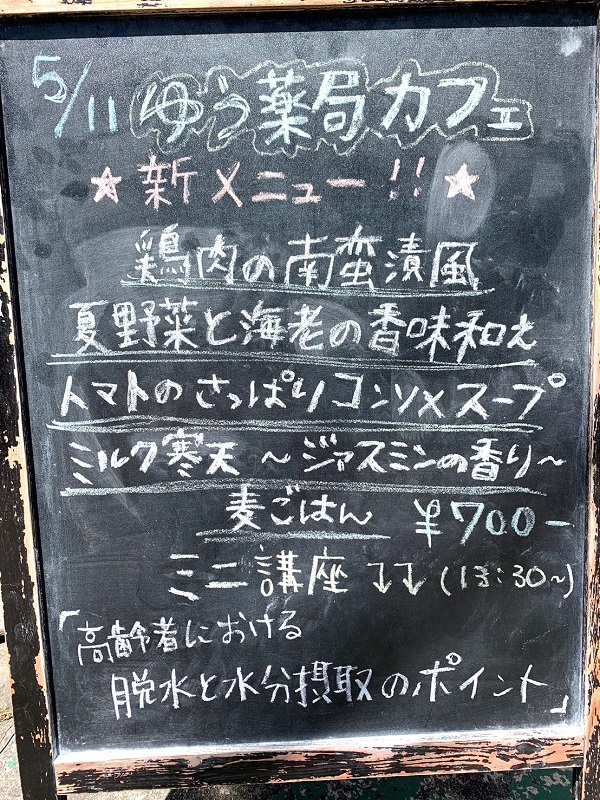 5/11 ゆう薬局カフェ
★新メニュー!!★
鶏肉の南蛮漬風
夏野菜と海老の香味和え
トマトのさっぱりコンソメスープ
ミルク寒天 〜ジャスミンの香り〜
麦ごはん ¥700-
ミニ講座 ↓↓ (13:30〜)
「高齢者における
脱水と水分摂取のポイント」